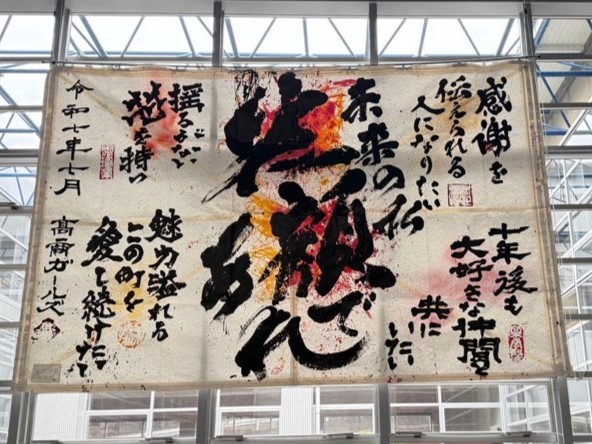 感謝を
伝えられる
人になりたい
十年後も
大好きな仲間と
共に
いたい
未来の私
笑顔で
あれ
揺るぎない
を持つ
魅力溢れる
この町を
愛し続けたい
令和七年七月
ガールズ